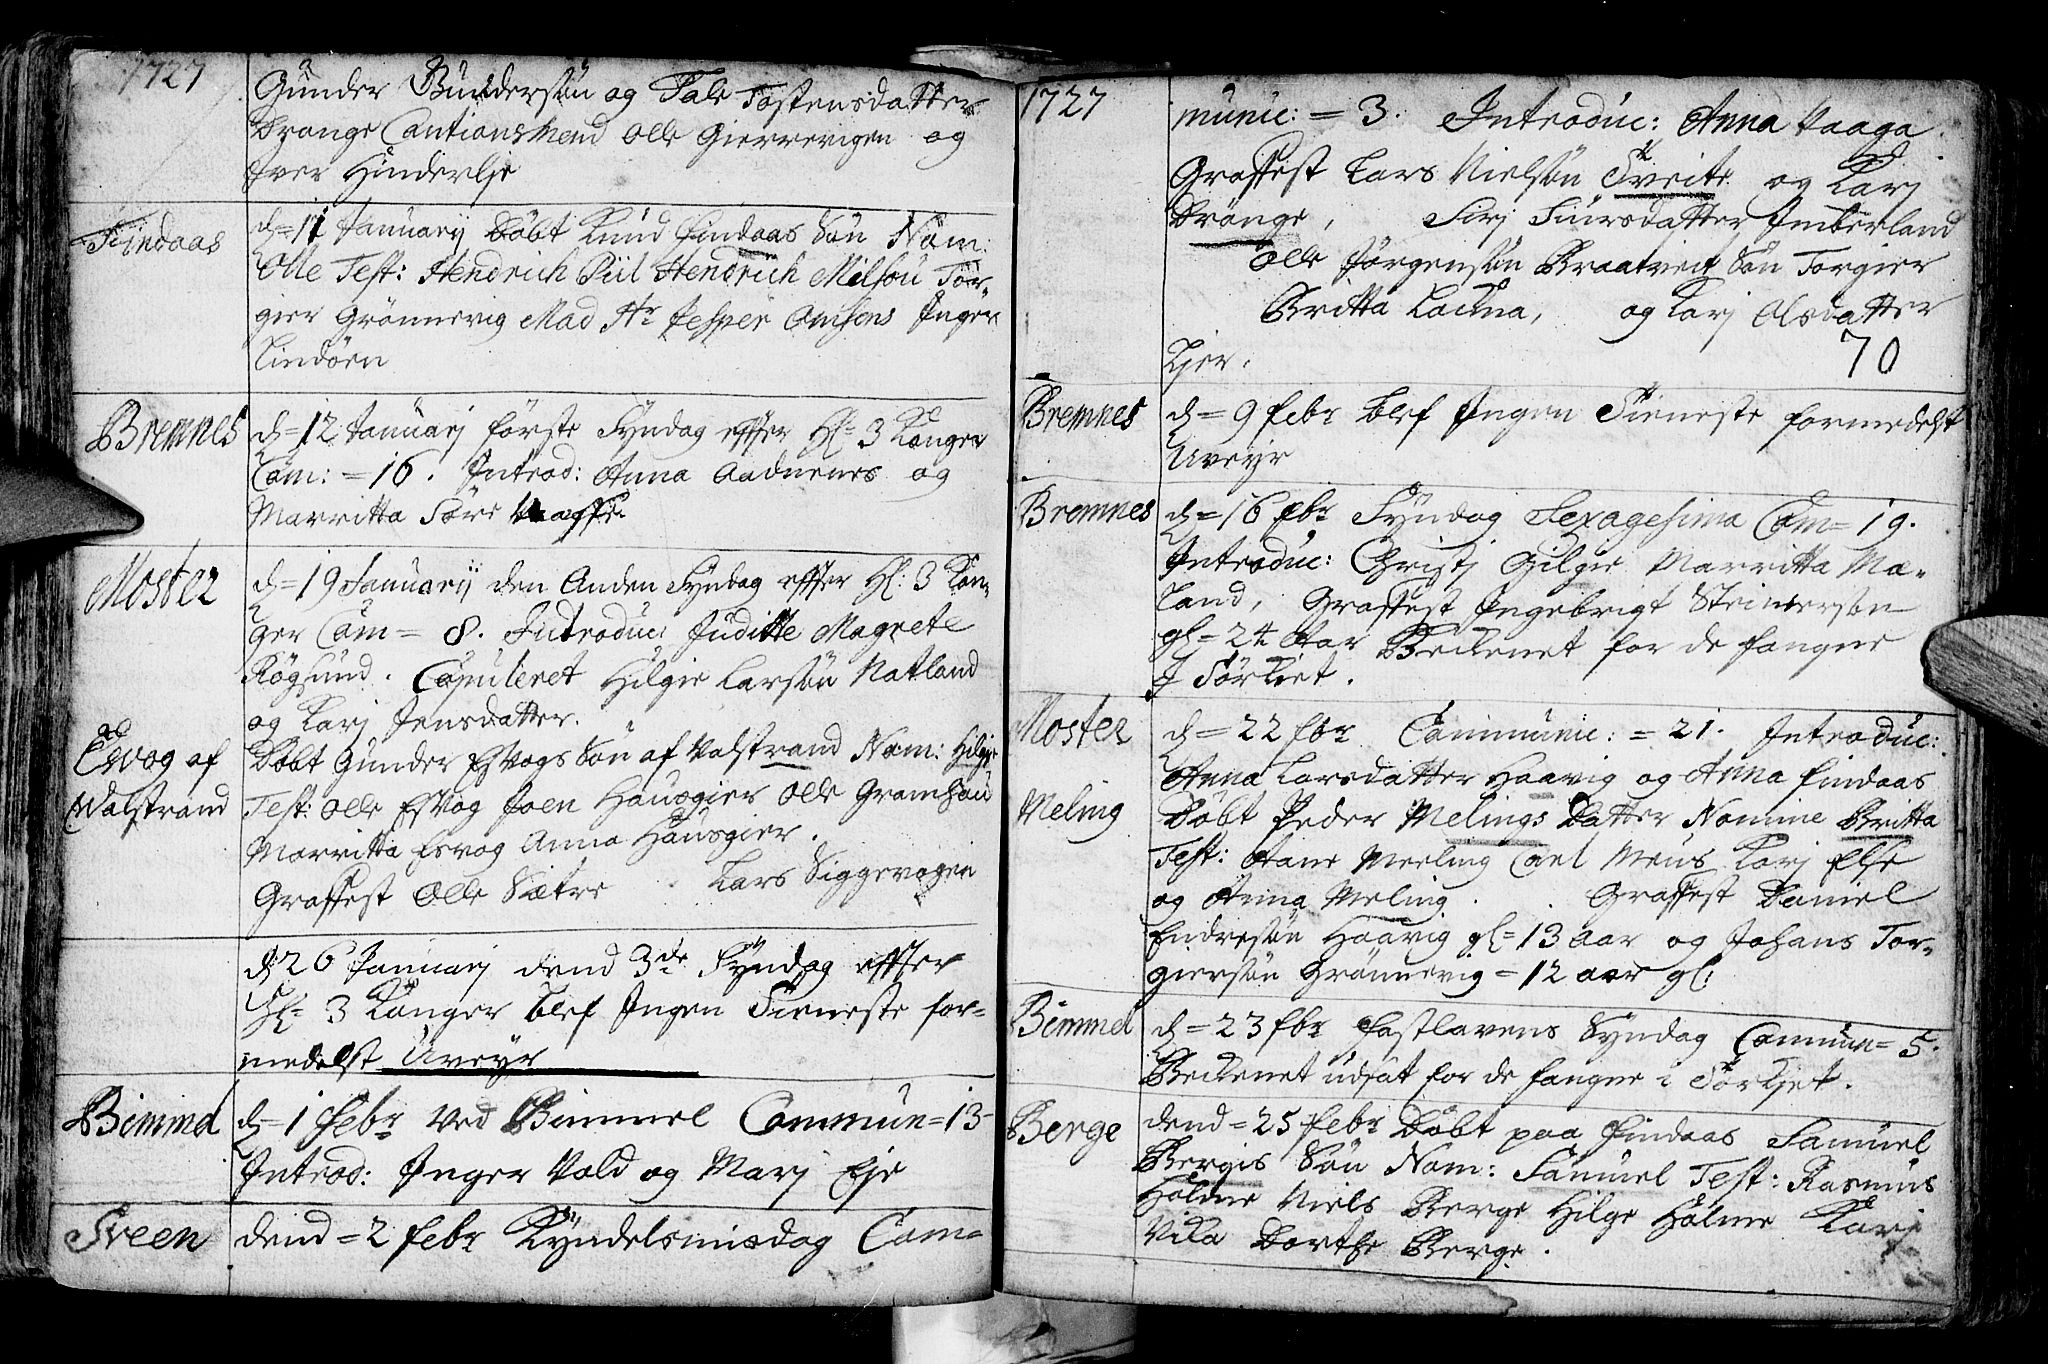 1727
Gunder Gundersøn og Tale Tostensdatter
Drange Cautionsmend Olle Gierrevigen og
Iver Hinderlje
Findaas
d= 11 Januarij Døbt Knud Findaas Søn Nom:
Olle Test: Hendrich Piil Hendrich Milsou Tor-
gier Grønnevig Mad Hr Jesper Inger
Lindøen
Bremnes
d= 12 Januarj første Syndag effter Hl= 3 Konger
Com: = 16. Introd: Anna Aadnenes og
Marritta Søre Vaage
Moster
d= 19 Januarij den Anden Syndag effter Hl: 3 Kon-
ger Com= 8. Introduc: Juditte Magrete
Røgsund. Copuleret Hilgie Larsøn Natland
og Karj Jensdatter.
Esvog af
Valstrand
Døbt Gunder Esvogs Søn af Valstrand Nom: Hilgie
Test: Olle Esvog Joen Hausgier Olle Gramshau
Marritta Esvog Anna Hausgier.
Graffest Olle Sætre Lars Siggevogen
d 26 Januarj dend 3de Syndag effter
Hl= 3 Konger blef Ingen Tieneste for-
medelst Uveyr
Bimmel
d= 1 Febr Ved Bimmel Commun= 13
Introd: Inger Vold og Marj Eje
Sveen
dend= 2 Febr Kyndelsmisdag Com=
1727
munic: = 3. Introduc: Anna Vaaga.
Graffest Lars Nielsøn Tveite og Karj
Drange, Sirj Siursdatter Imberland
Olle Jørgensøn Braatveit Søn Torgier
Britta Ladna, og Karj Olsdatter
Lier.
70
Bremnes
d= 9 Febr blef Ingen Tieneste formedelst
Uveyr
Bremnes
d= 16 Fbr Syndag Sexagesima Com= 19.
Introduc: Christj Gilgie Marritta Mæ-
land, Graffest Ingebrigt Steinersøn
gl= 24 Aar Beckenet for de fangne
J Tørkiet.
Moster
d= 22 Fbr Communic: = 21. Introduc:
Anna Larsdatter Haavig og Anna Findaas
Meling
Døbt Peder Melings Datter Nomine Britta
Test: Aane Meeling Carl Meus Karj Else
og Anna Meling. Graffest Daniel
Endresøn Haavig gl= 13 aar og Johans Tor-
giersøn Grønnevig= 12 aar gl:
Bimmel
d= 23 Fbr Fastlavens Syndag Commun= 5.
Beckenet udsat for de fangne i Tørkiet.
Berge
dend= 25 Febr Døbt paa Findaas Samuel
Bergis Søn Nom: Samuel Test: Rasmus
Holme Niels Berge Hilge Holme Karj
Vika Dorthe Berge.